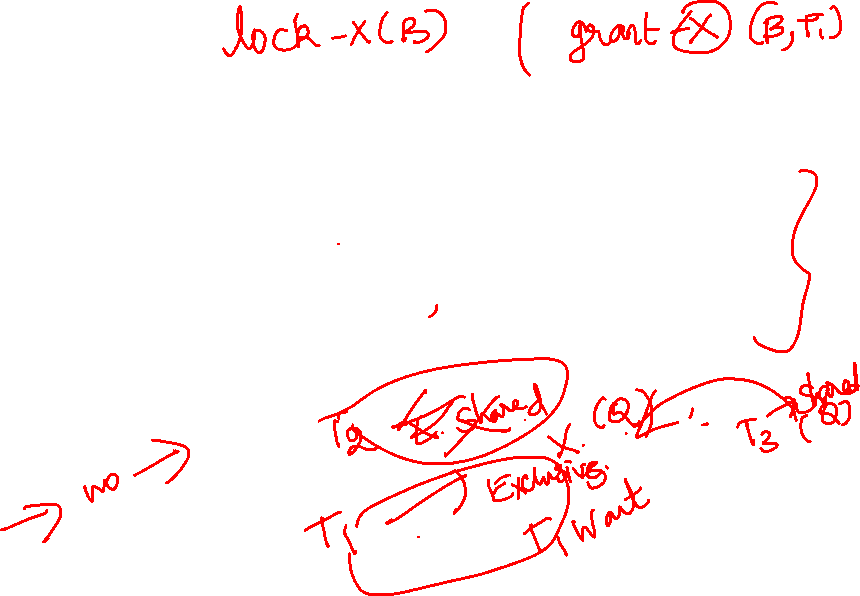 lock-X(B) ( grant-X (B,T1)
T2 Shared (Q) T3 Shared (Q)
X.
no → T1 Exclusive
T1 Want